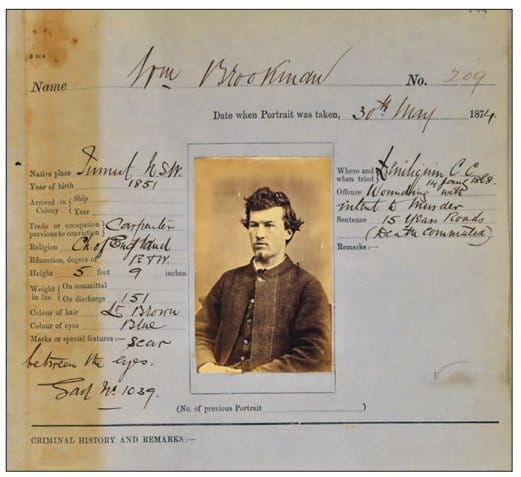 Name Wm Brookman No. 209
Date when Portrait was taken, 30th May 1874.
Native place Tumut N.S.W.
Year of birth 1851
Arrived in Colony { Ship
Year
Trade or occupation previous to conviction } Carpenter
Religion Ch of England
Education, degree of R & W.
Height 5 feet 9 inches.
Weight in lbs. { On committal
On discharge 151
Colour of hair Lt Brown
Colour of eyes Blue
Marks or special features:— Scar
between the eyes.
Gaol No. 1039.
Where and when tried } Deniliquin C.C.
14 Jany 1868.
Offence Wounding with
intent to Murder
Sentence 15 Years Roads
(Death commuted)
Remarks:—
(No. of previous Portrait )
CRIMINAL HISTORY AND REMARKS:—